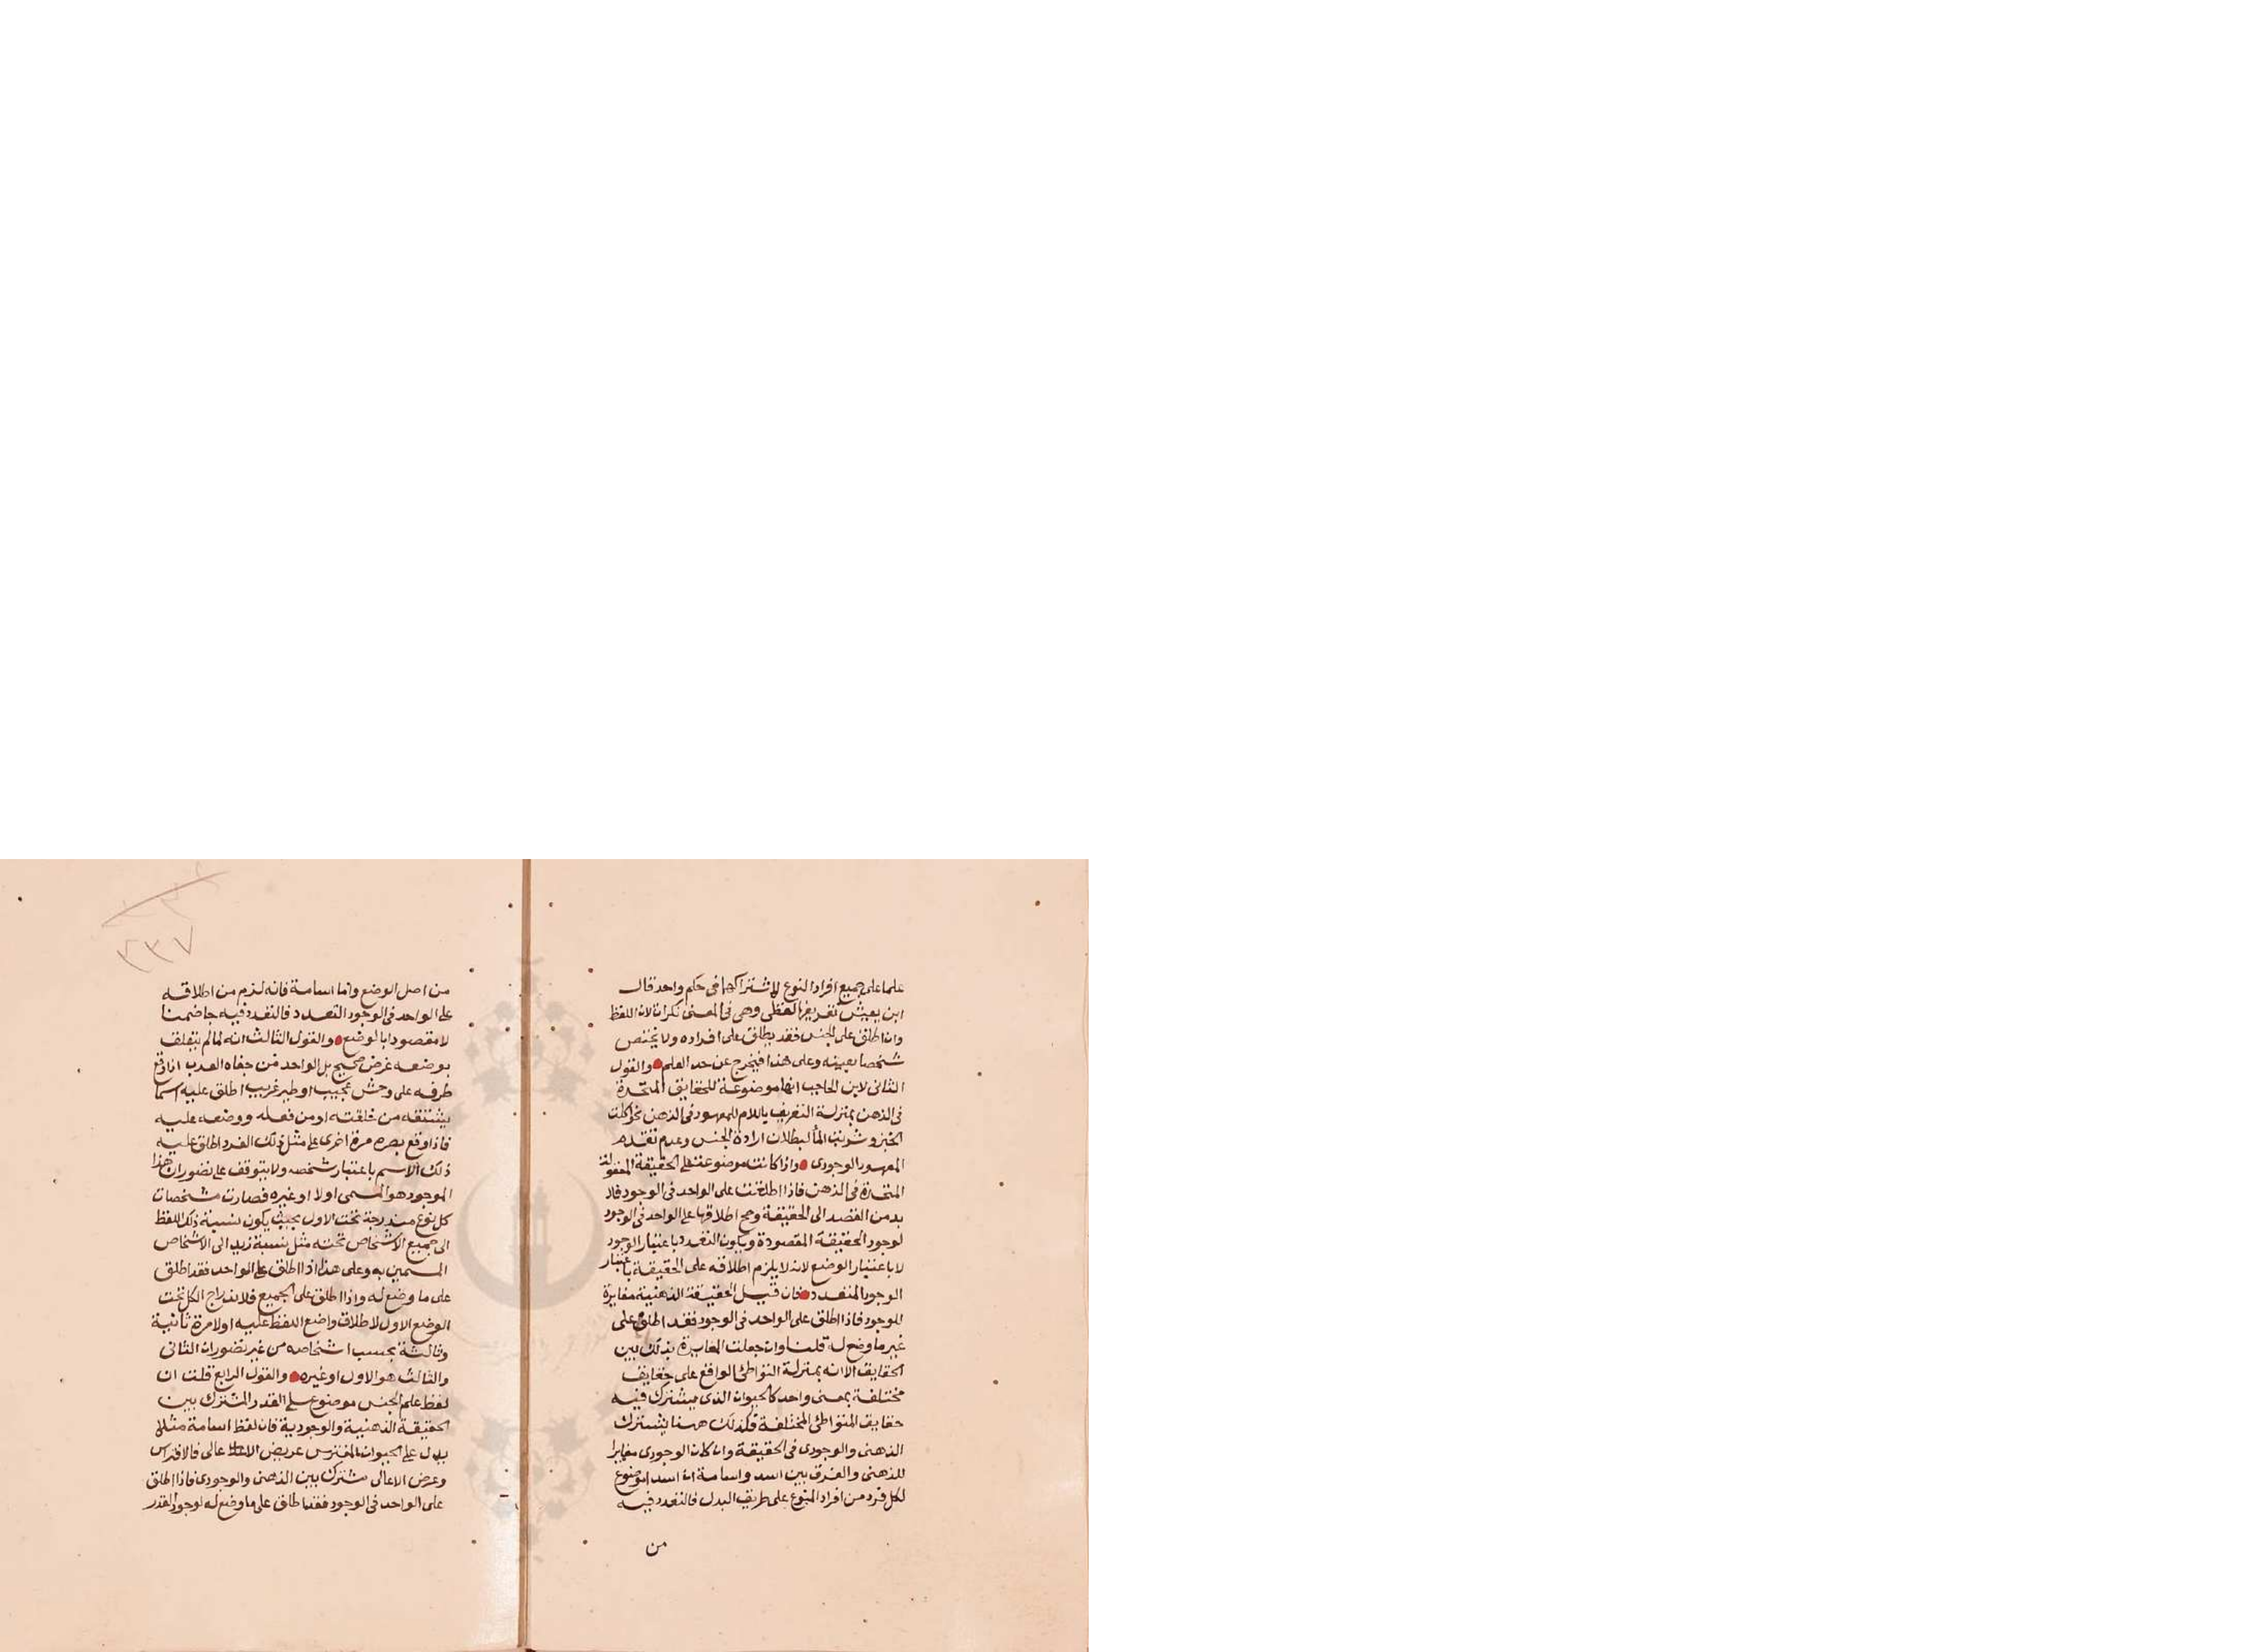 علما على جميع افراد النوع لاشتراكها فى حكم واحد قال
ابن يعيش تعريفها لفظى وهى فى المعنى نكرات لان اللفظ
وان اطلق على الجنس فقد يطلق على افراده ولا يختص
شخصا بعينه وعلى هذا فيخرج عن حد العلم والقول
الثانى لابن الحاجب انها موضوعة للحقايق المتحدة
فى الذهن بمنزلة التعريف باللام للمعهود فى الذهن نحو اكلت
الخبز وشربت الما لبطلان ارادة الجنس وعدم تقدم
المعهود الوجودى واذا كانت موضوعة على الحقيقة المعقولة
المتحدة فى الذهن فاذا اطلقت على الواحد فى الوجود فلا
بد من القصد الى الحقيقة وصح اطلاقها على الواحد فى الوجود
لوجود الحقيقة المقصودة ويكون التعدد باعتبار الوجود
لا باعتبار الوضع لانه لا يلزم اطلاقه على الحقيقة باعتبار
الوجود المتعدد فان قيل الحقيقة الذهنية مغايرة
للوجود فاذا اطلق على الواحد فى الوجود فقد اطلق على
غير ما وضع له قلنا وان جعلت المغايرة بذلك بين
الحقايق الا انه بمنزلة التواطئ الواقع على حقايق
مختلفة بمعنى واحد كالحيوان الذى يشترك فيه
حقايق المتواطئ المختلفة فكذلك ههنا يشترك
الذهنى والوجودى فى الحقيقة وان كان الوجودى مغايرا
للذهنى والفرق بين اسد واسامة ان اسد موضوع
لكل فرد من افراد النوع على طريق البدل فالتعدد فيه
من
٢٣٧
من اصل الوضع واما اسامة فانه لزم من اطلاقه
على الواحد فى الوجود التعدد فالتعدد فيه جا ضمنا
لا مقصودا بالوضع والقول الثالث انه لما لم يتعلق
بوضعه غرض صحيح بل الواحد من جفاه العرب اذا وقع
طرفه على وحش عجيب او طير غريب اطلق عليه اسما
يشتقه من خلقته او من فعله ووضعه عليه
فاذا وقع بصره مرة اخرى على مثل ذلك الفرد اطلق عليه
ذلك الاسم باعتبار شخصه ولا يتوقف على تصور ان هذا
الموجود هو المسمى اولا او غيره فصارت مشخصات
كل نوع مندرجة تحت الاول بحيث يكون نسبة ذلك اللفظ
الى جميع الاشخاص تحته مثل نسبة زيد الى الاشخاص
المسمين به وعلى هذا اذا اطلق على الواحد فقد اطلق
على ما وضع له واذا اطلق على الجميع فلاندراج الكل تحت
الوضع الاول لاطلاق واضع اللفظ عليه اولا مرة ثانية
وثالثة بحسب اشخاصه من غير تصور ان الثانى
والثالث هو الاول او غيره والقول الرابع قلت ان
لفظ علم الجنس موضوع على القدر المشترك بين
الحقيقة الذهنية والوجودية فان لفظ اسامة مثلا
يدل على الحيوان المفترس عريض الاعالى فالافتراس
وعرض الاعالى مشترك بين الذهنى والوجودى فاذا اطلق
على الواحد فى الوجود فقد اطلق على ما وضع له لوجود القدر